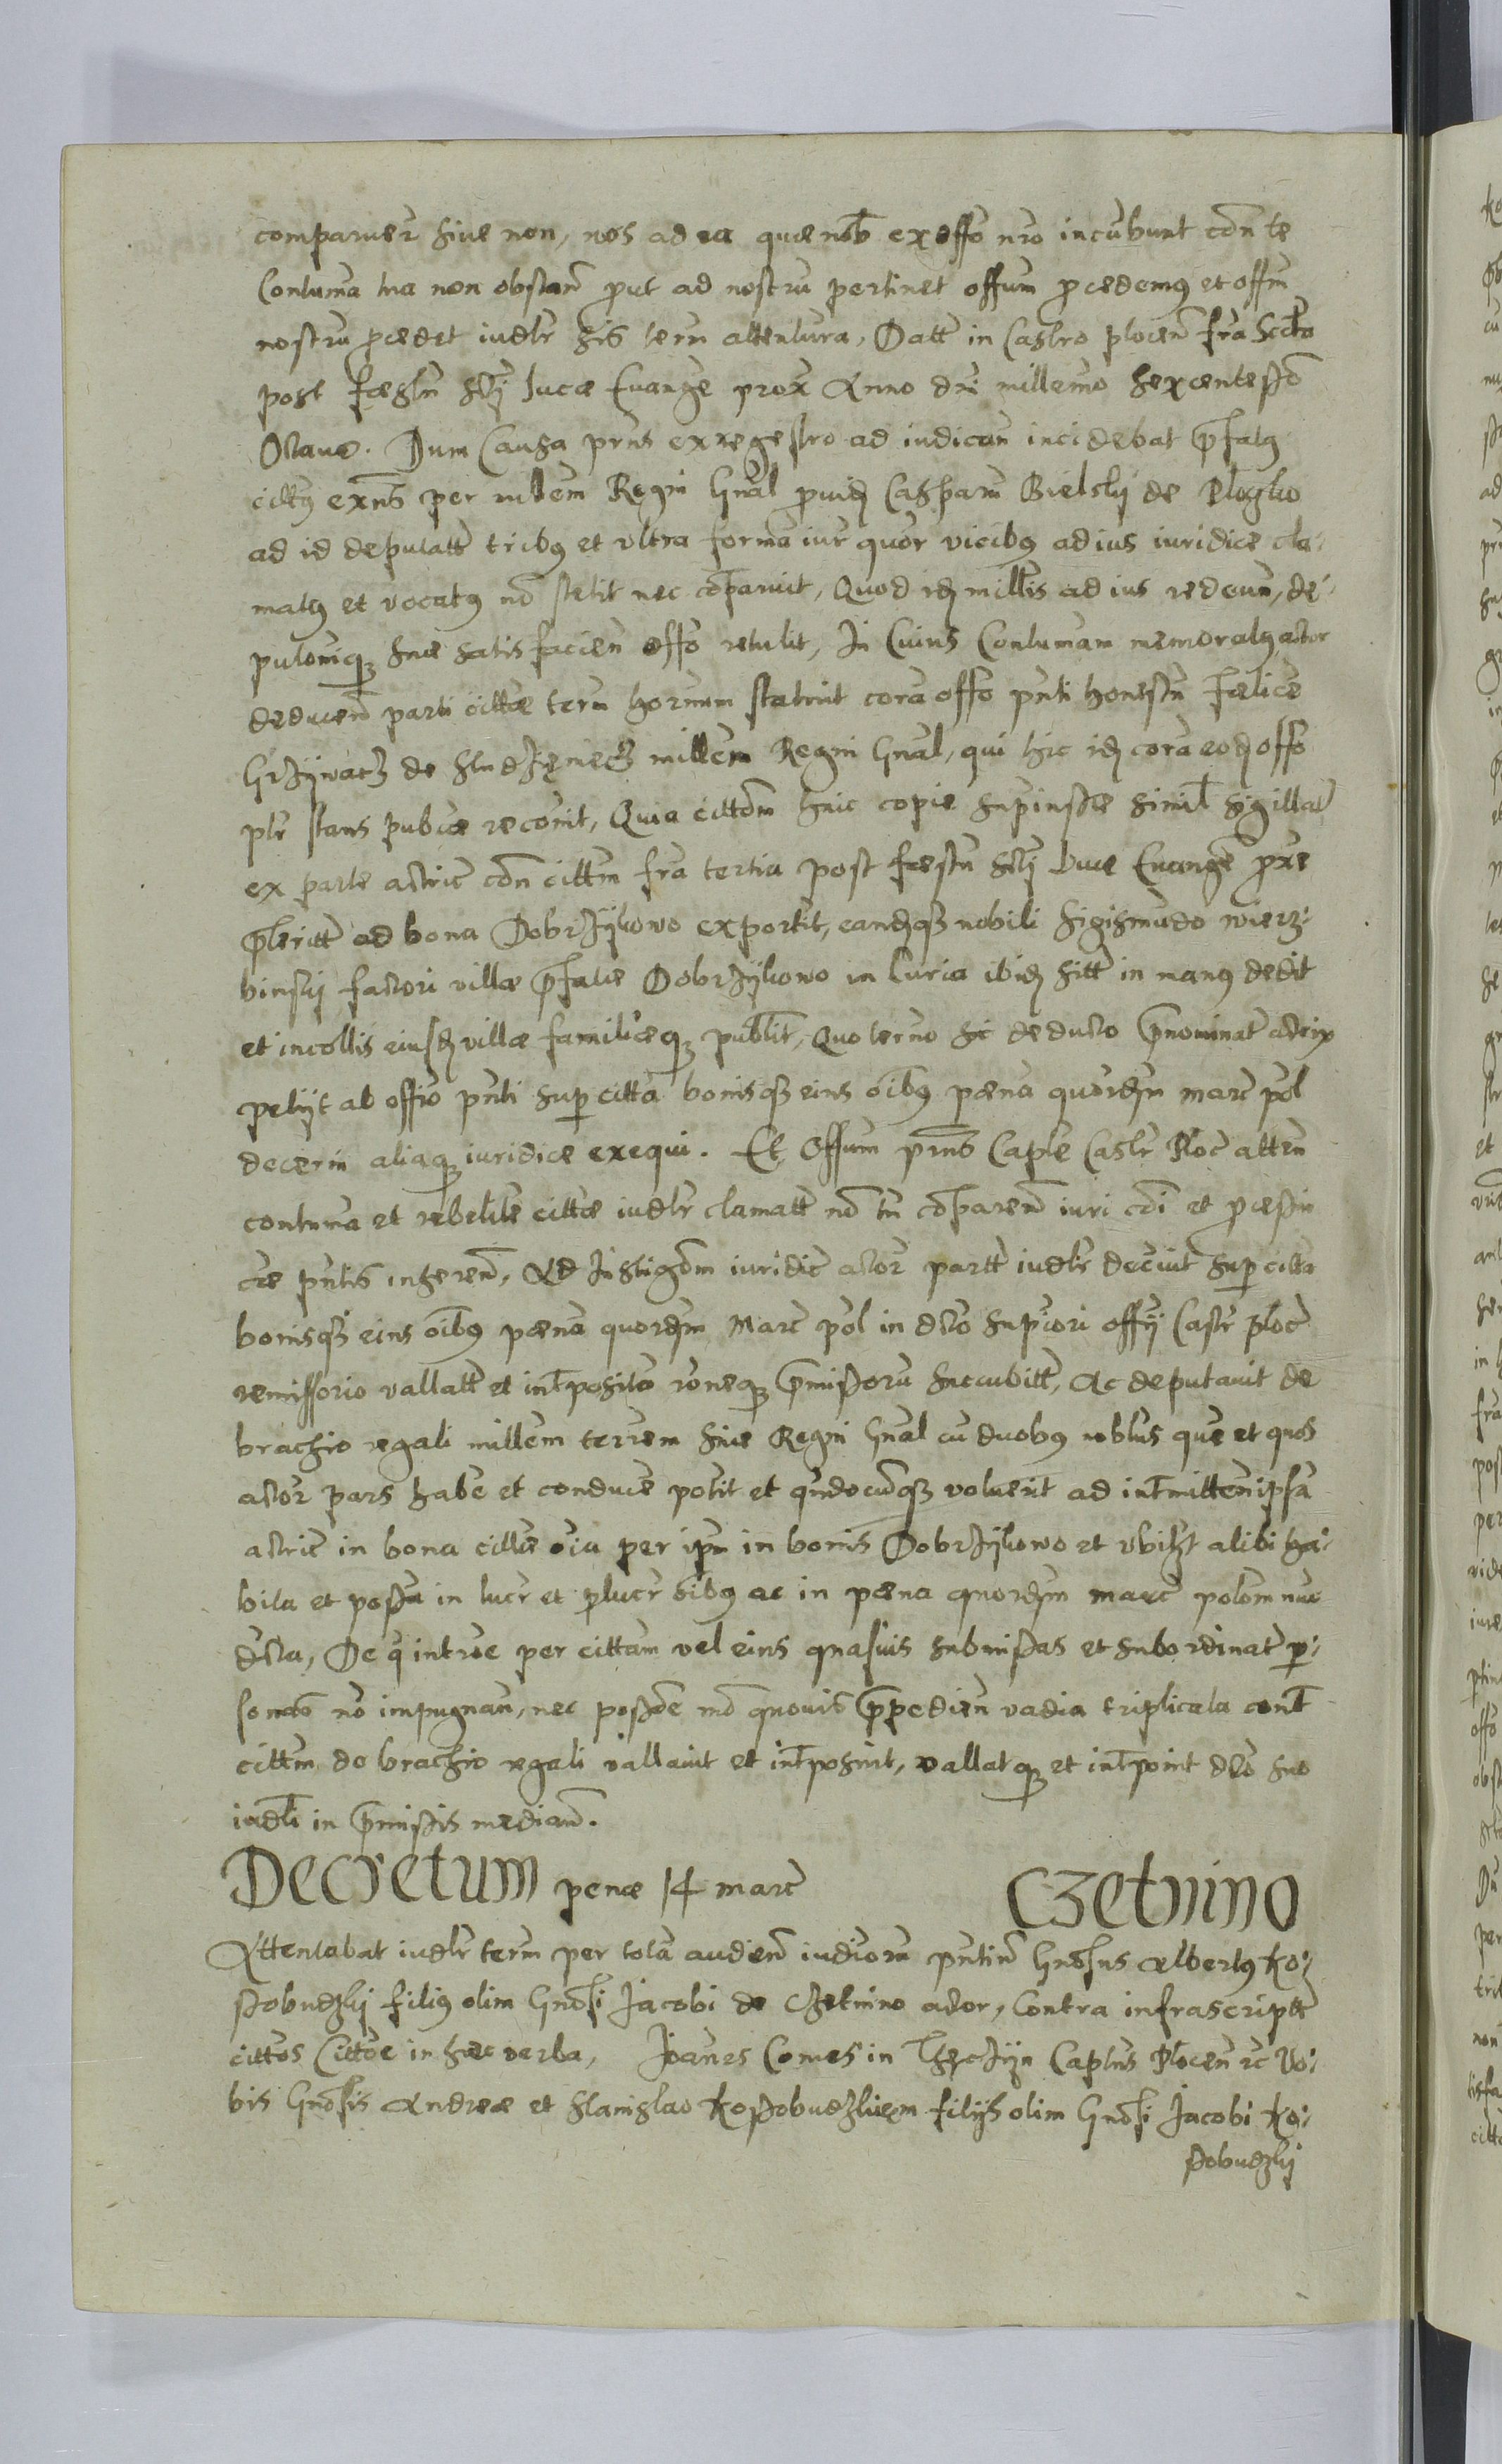 comparuer̃ siue non, nos ad ea quæ nob̃ ex offo nr̃o incũbunt con te
Contuma tua non obstañ put ad nostrũ pertinet offum pcedemꝰ et offm̃
nostrũ pcedet iudlr̃ his term attentura, Datt in Castro plocen̄ fra Sexta
post fæstũ scti Lucæ Euange prox Anno dni millemo sexcentesõ
Octauo. Dum Causa prns ex regestro ad iudicañ incidebat p̃fatꝰ
cittꝰ exñs per mlem Regni Gnal prouid Casparũ Bielsky de
ad id deputatt tribꝰ et vltra formã iur̃ quor vicibꝰ ad ius iuridice cla-
matꝰ et vocatꝰ nõ stetit nec cõparuit, Quod id millis ad ius redeun, de-
putoniqꝫ suæ satis facien offo retulit, In Cuius Contumam memoratꝰ actor
deducenđ parti cittæ term hornum statuit corã offo pnti honestũ fælicẽ
Grzÿwacz de millem Regni Gnal, qui hic id corã eod offo
plr̃ stans publice recoñit, Quia cittom huic copiæ supinsctæ simil̃ sigillat̃
ex parte actric con cittm̃ fra tertia post fæstũ scti Lucæ Euange pxe
pteritt ad bona Dobrzÿkowo exportit, eandqꝫ nobili Sigismũdo wierz-
binsky factori villæ p̃fatæ Dobrzÿkowo in Curia ibid sitt in manꝰ dedit
et incollis eiusd villæ familiæqꝫ publit, Quo termo sic deducto p̃nominat̃ actrix
petijt ab offio pnti sup cittã bonisqꝫ eius oibꝰ pæna quordm̃ marc pol
decerni aliaqꝫ iuridice exequi. Et Offum prns Caple Castr̃ Ploc atten̄
contuma et rebelle cittæ iudlr̃ clamatt nõ tñ cõparenđ iuri coi et
cæ pntis inheren̄, Ad Instigõm iuridic actor partt iudlr̃ decreuit sup cittã
bonisqꝫ eius oibꝰ pæna quordm̃ Marc pol in dcto supiori offij Castr̃ ploc
remissorio vallatt et int̃posito roneqꝫ p̃missorũ succubitt, Ac deputauit de
brachio regali millem terrem siue Regni Gnal cũ duobꝰ noblus quẽ et quos
actor pars habe et conduce potit et qndocũqꝫ voluerit ad int̃mitten ipsã
actric in bona cittæ oia per ipm̃ in bonis Dobrzÿkowo et vbius alibi ha-
bita et possa in lucr̃ et plucr̃ oibꝰ ac in pæna quordm̃ marc polom nuc
dcta, De q introe per cittam vel eius quasuis submissas et subordinat̃ p-
sonas nõ impugnan̄, nec possõe mõ quouis p̃pedien vadia triplicata cont̃
cittm̃ de brachio regali vallauit et int̃posuit, vallatqꝫ et int̃ponit dcto suo
iudli in p̃missis median̄.
Decretum penæ 14 marc
Czetnino
Attentabat iudlr̃ term per totã audien̄ iudiorũ pntiũ Gnosus Albertꝰ Ko-
ssobudzky filiꝰ olim Gnosi Jacobi de Czetnino actor, Contra infrascriptt
cittos Cittõe in hæc verba, Joanes Comes in Thęczÿn Captns Plocen̄ rc Vo-
bis Gnosis Andreæ et Stanislao Kossobudzkiem filijs olim Gnosi Jacobi Ko-
ssobudzky